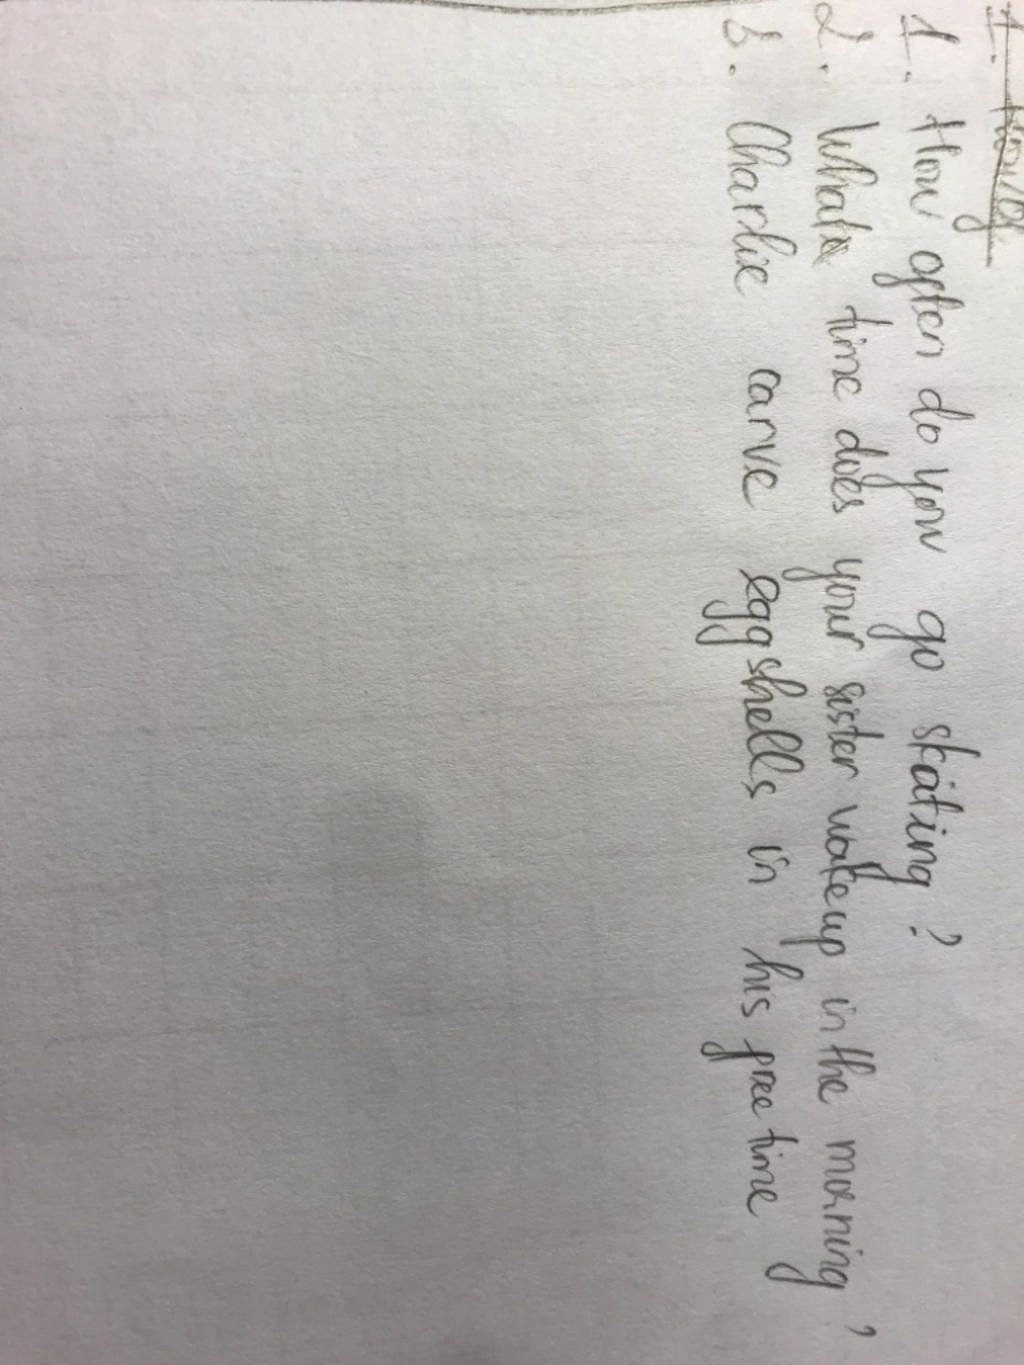 1. How of
1. How often do you go skating?
2. What time does your sister wake up in the morning?
3. Charlie carve eggshells in his free time